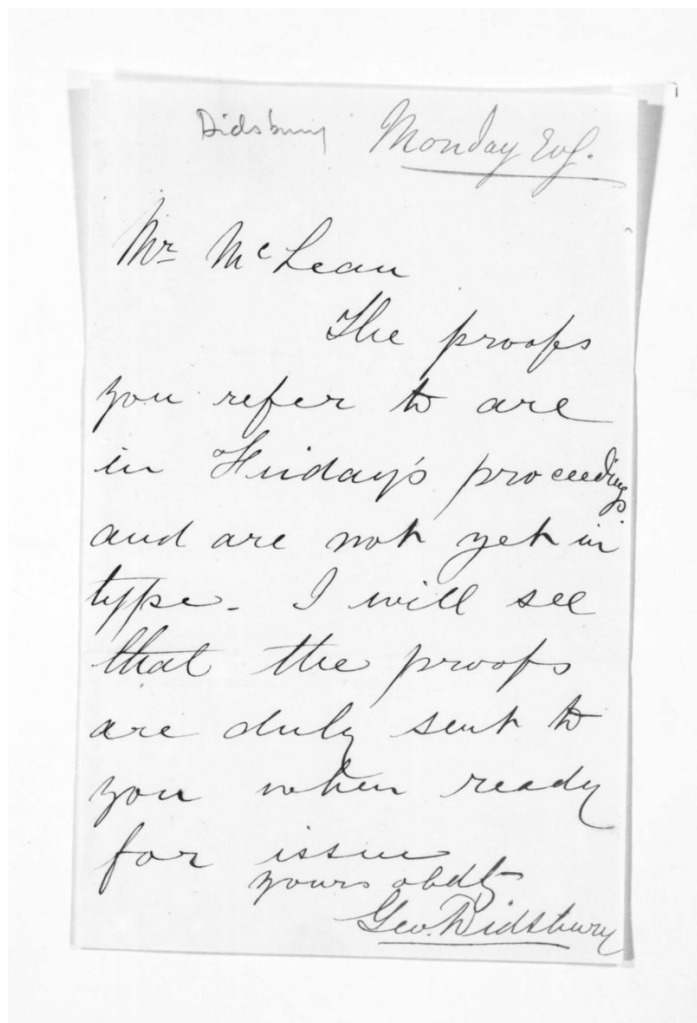 Didsbury Monday Evg.
Mr McLean
The proofs
you refer to are
in Friday's proceedings
and are not yet in
type. I will see
that the proofs
are duly sent to
you when ready
for issue
yours obdtly
Geo. Didsbury